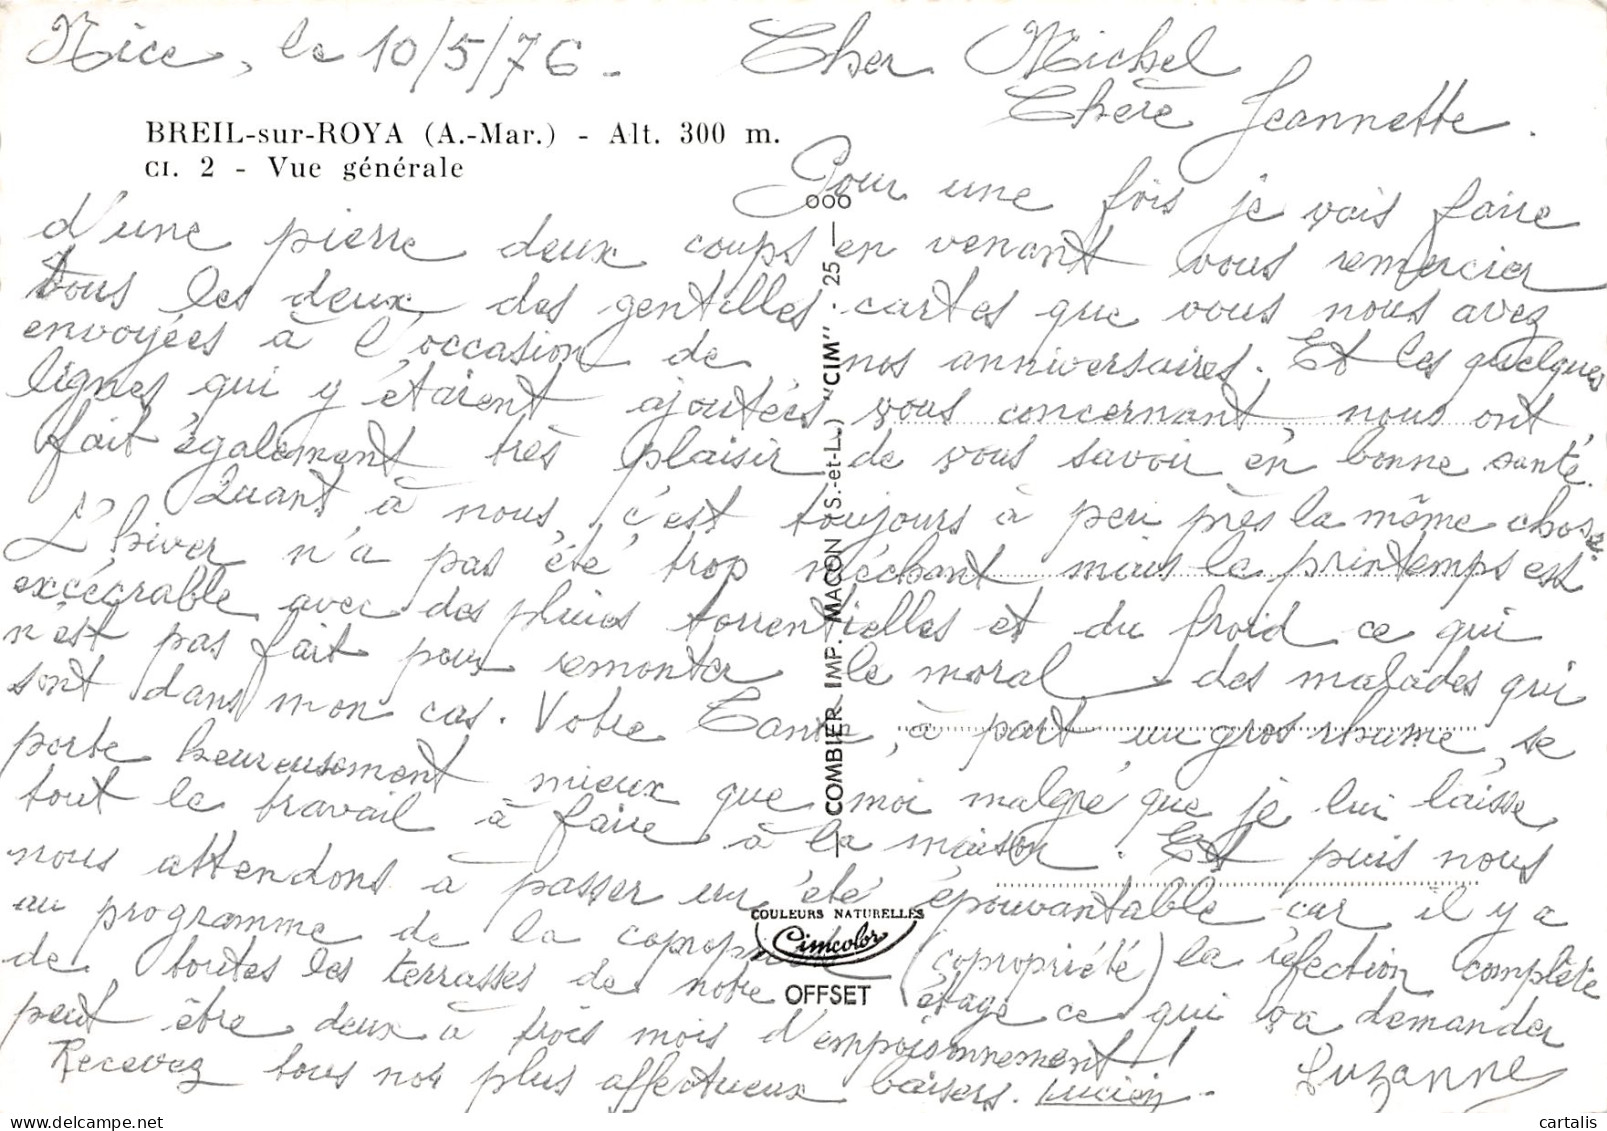 Nice, le 10/5/76.
Cher Michel
Chère Jeannette.
BREIL-sur-ROYA (A.-Mar.) - Alt. 300 m.
CI. 2 - Vue générale
Pour une fois je vais faire
d'une pierre deux coups en venant vous remercier
tous les deux des gentilles cartes que vous nous avez
envoyées à l'occasion de nos anniversaires. Et les quelques
lignes qui y étaient ajoutées vous concernant, nous ont
fait également très plaisir de vous savoir en bonne santé.
Quant à nous, c'est toujours à peu près la même chose.
L'hiver n'a pas été trop méchant mais le printemps est
excécrable avec des pluies torrentielles et du froid ce qui
n'est pas fait pour remonter le moral des malades qui
sont dans mon cas. Votre Tante, à part un gros rhume, se
porte heureusement mieux que moi malgré que je lui laisse
tout le travail à faire à la maison. Et puis nous
nous attendons à passer un été épouvantable car il y a
au programme de la copropriété (copropriété) la réfection complète
de toutes les terrasses de notre étage ce qui va demander
peut être deux à trois mois d'empoisonnement!
Recevez tous nos plus affectueux baisers. Lucien.
Suzanne
COMBIER IMP. MACON (S.-et-L.) "CIM" - 25 - ooo
COULEURS NATURELLES
Cimcolor
OFFSET
cartalis